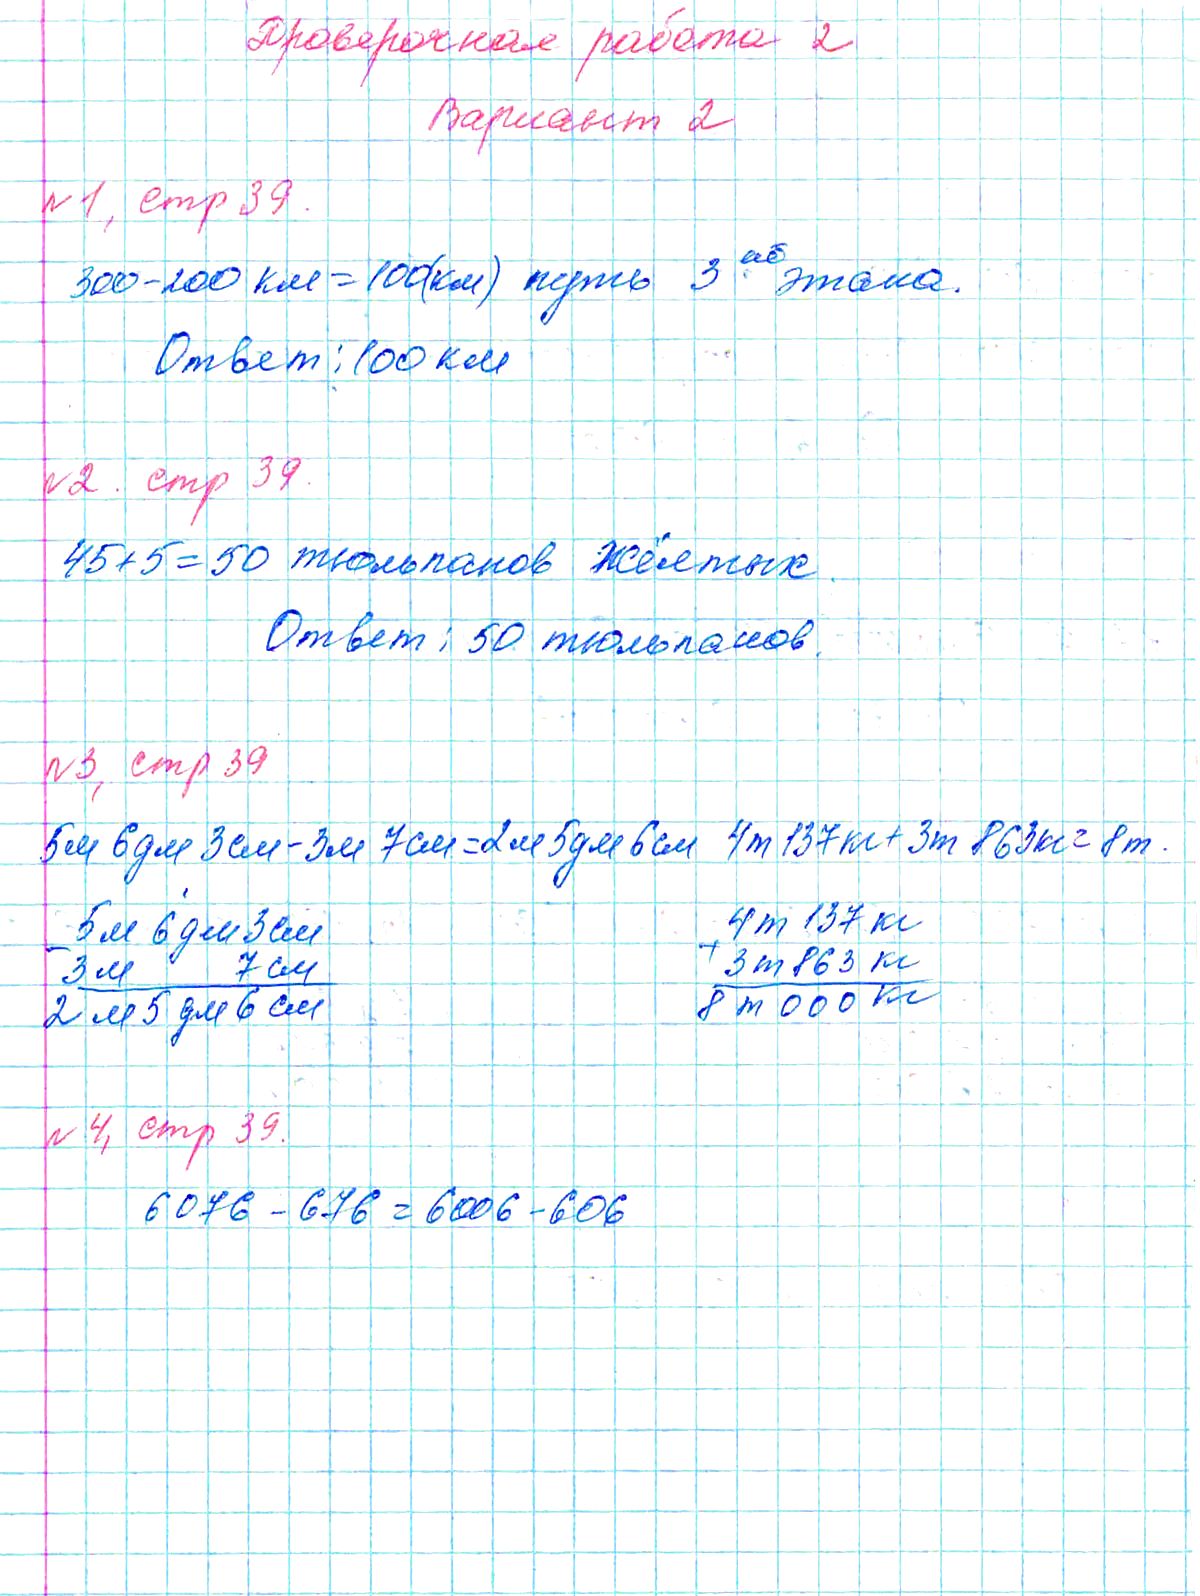 Проверочная работа 2
Вариант 2
№1, стр 39.
300-200 км = 100(км) путь 3 этапа.
Ответ: 100 км
№2. стр 39.
45+5=50 тюльпанов жёлтых.
Ответ: 50 тюльпанов.
№3, стр 39
5м 6дм 3см - 3м 7см = 2м 5дм 6см 4т 137кг + 3т 863кг = 8т.
5м 6дм 3см 4т 137 кг
- 3м 7см + 3т 863 кг
2м 5дм 6см 8т 000 кг
№4, стр 39.
6076 - 676 = 6006 - 606